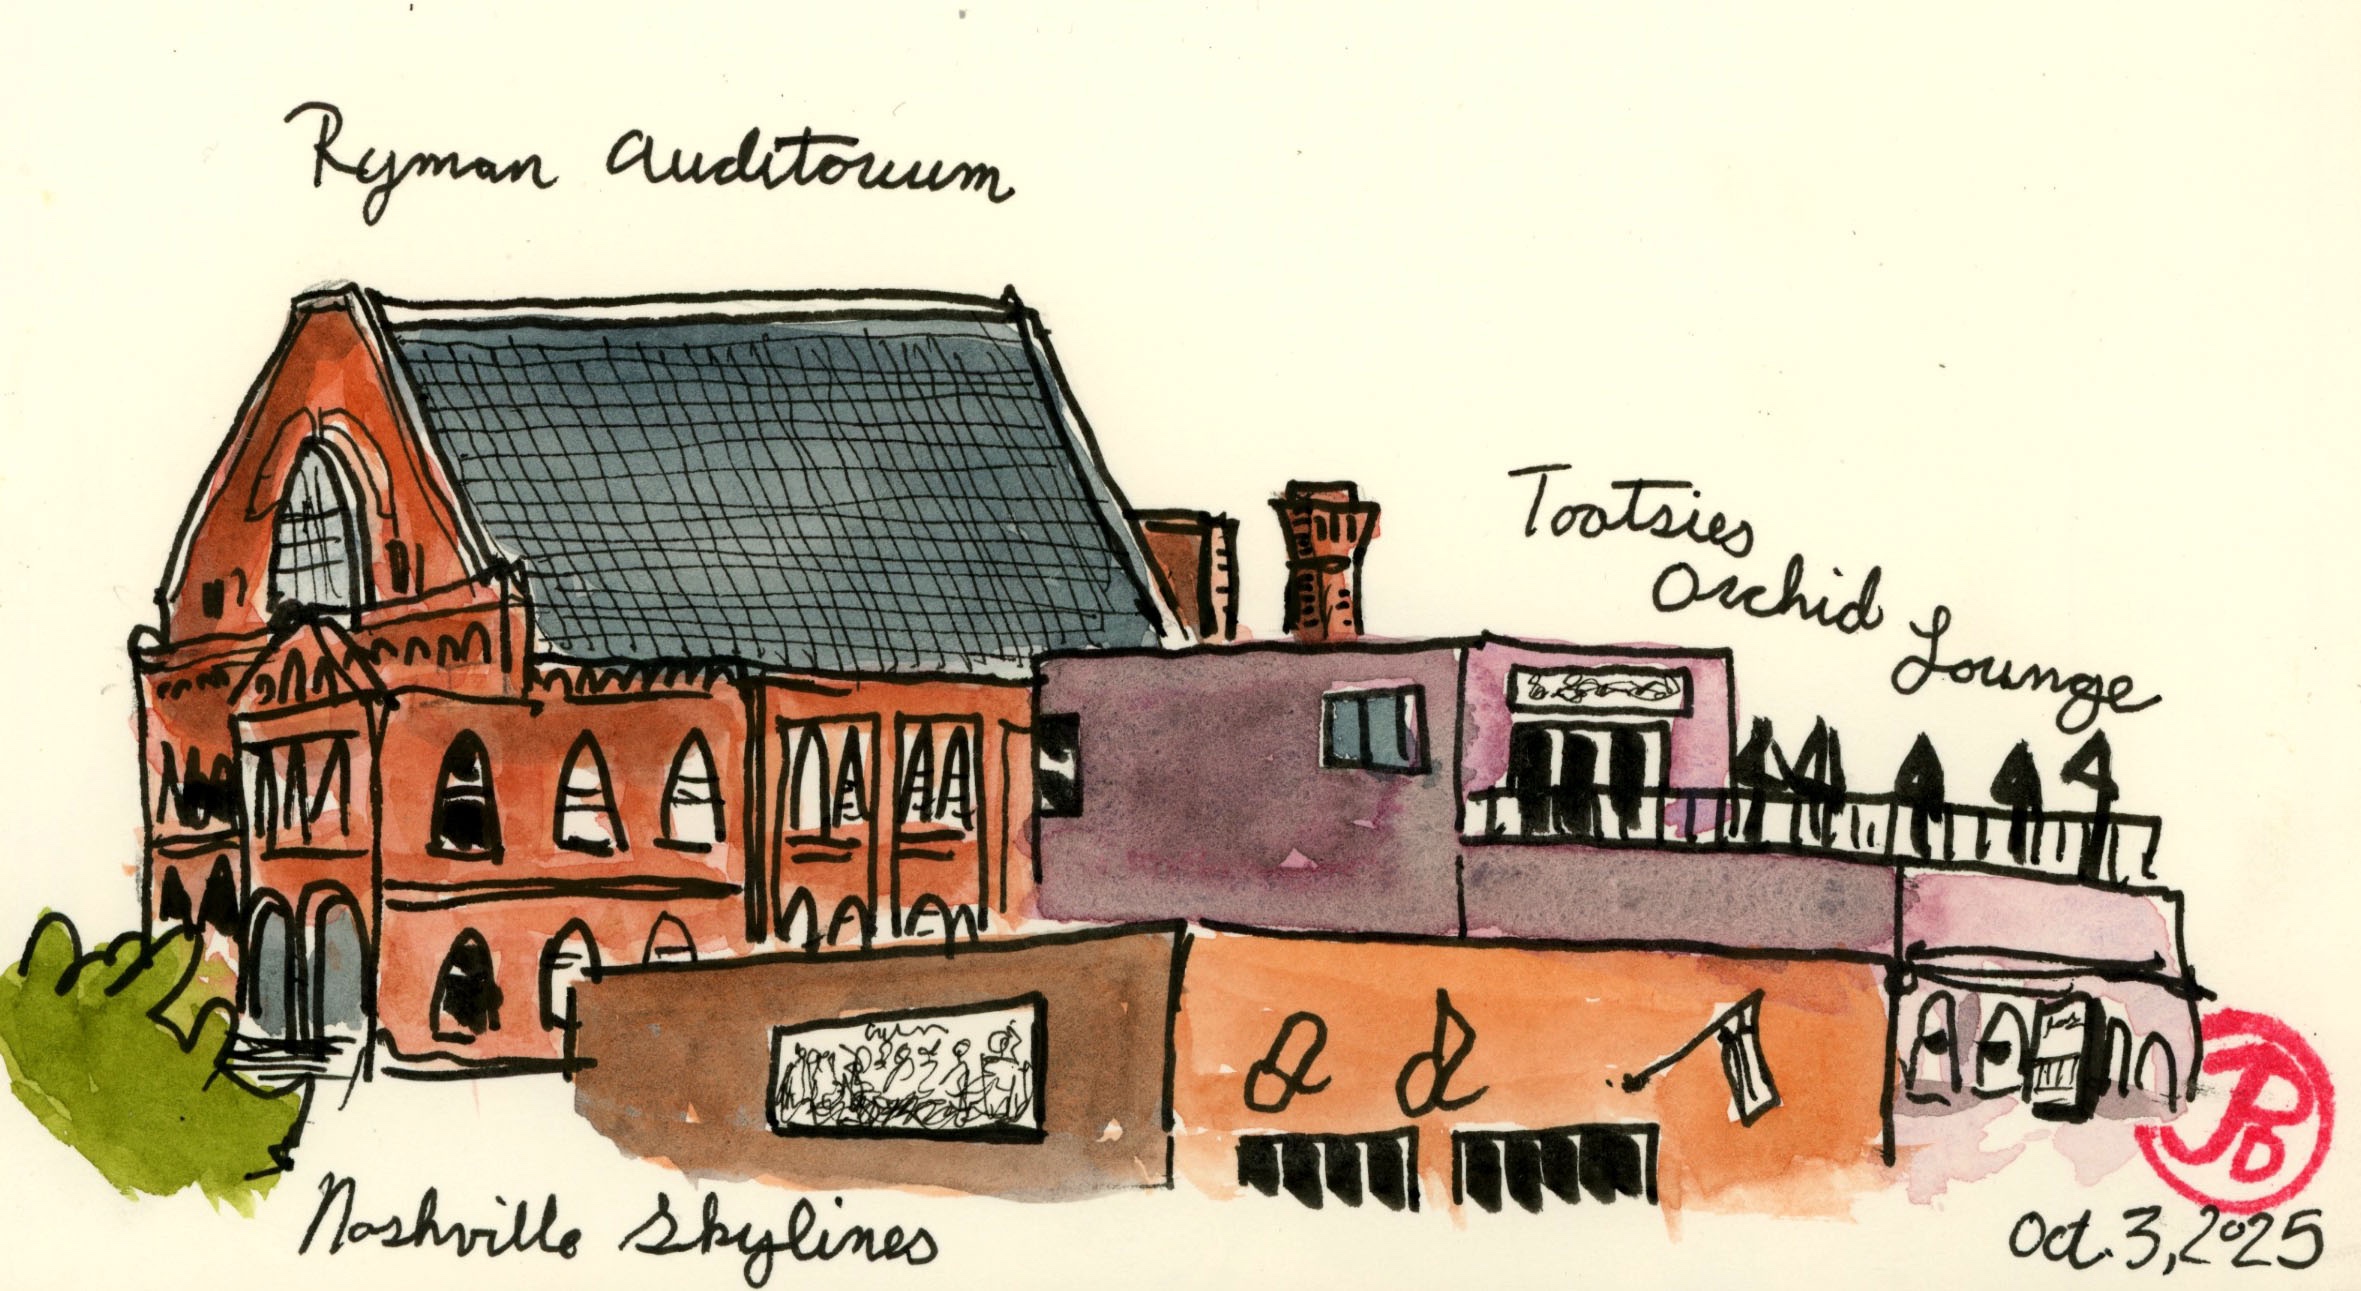 Ryman Auditorium
Tootsies
Orchid Lounge
Nashville Skylines
Oct. 3, 2025